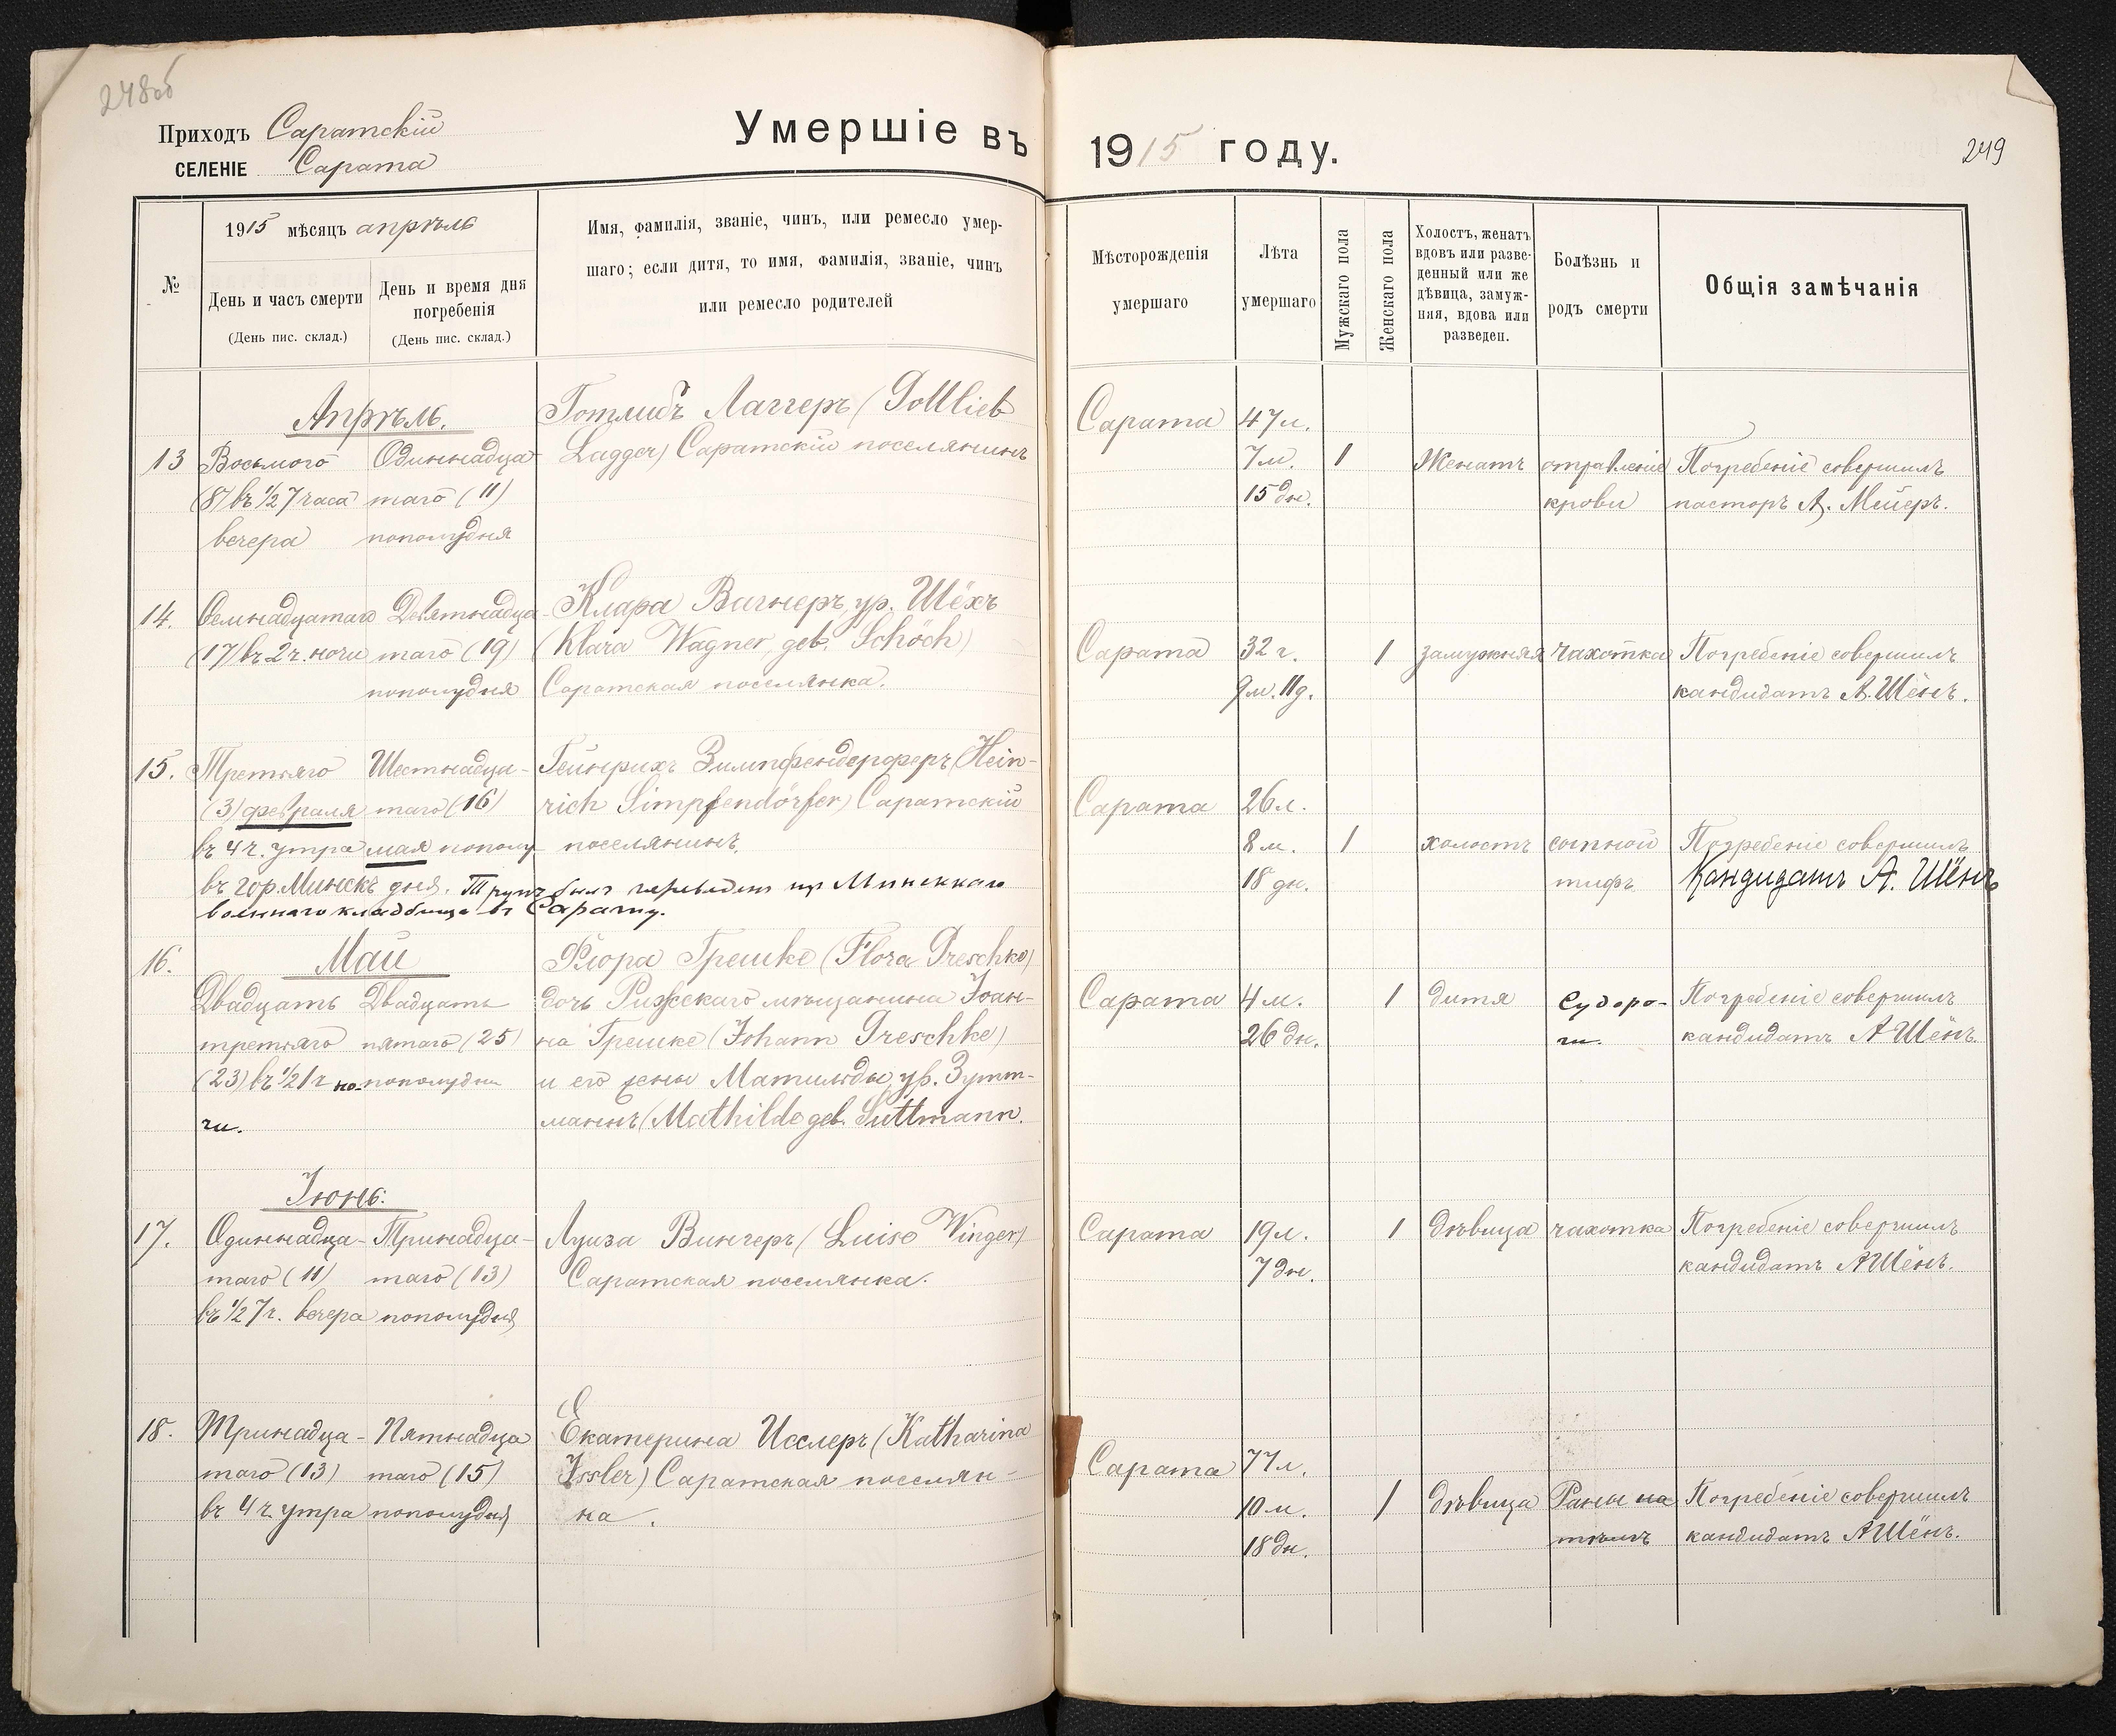 248об
Приходъ Саратскій
СЕЛЕНІЕ Сарата
Умершіе въ 1915 году.
249
№
1915 мѣсяцъ апрѣль
День и часъ смерти
(День пис. склад.)
День и время дня
погребенія
(День пис. склад.)
Имя, фамилія, званіе, чинъ, или ремесло умер-
шаго; если дитя, то имя, фамилія, званіе, чинъ
или ремесло родителей
Мѣсторожденія
умершаго
Лѣта
умершаго
Мужскаго пола
Женскаго пола
Холостъ, женатъ
вдовъ или разве-
денный или же
дѣвица, замуж-
няя, вдова или
разведен.
Болѣзнь и
родъ смерти
Общія замѣчанія
Апрѣль.
13
Восьмого
(8) въ 1/2 7 часа
вечера
Одиннадца-
таго (11)
пополудня
Готлибъ Лаггеръ (Gottlieb
Lagger) Саратскій поселянинъ
Сарата
47 л.
7 м.
15 дн.
1
Женатъ
отравленіе
крови
Погребеніе совершилъ
пасторъ А. Мейеръ.
14.
Семнадцатаго
(17) въ 2 ч. ночи
Девятнадца-
таго (19)
пополудня
Клара Вагнеръ, ур. Шёхъ
(Klara Wagner, geb. Schöch)
Саратская поселянка.
Сарата
32 г.
9 м. 11 д.
1
замужняя
чахотка
Погребеніе совершилъ
кандидатъ А. Шёнъ.
15.
Третяго
(3) февраля
въ 4 ч. утра
въ гор. Минскъ
Шестнадца-
таго (16)
мая пополу-
дня.
Трупъ былъ перевезенъ изъ Минскаго
военнаго кладбища въ Сарату.
Гейнрихъ Зимпфендерферъ (Hein-
rich Simpfendörfer) Саратскій
поселянинъ.
Сарата
26 л.
8 м.
18 дн.
1
холостъ
сыпной
тифъ
Погребеніе совершилъ
Кандидатъ А. Шёнъ
16.
Май
Двадцать
третяго
(23) въ 1/2 1 ч но-
чи.
Двадцать
пятаго (25)
пополудни
Флора Грешке (Flora Greschke)
дочь Рижскаго мѣщанина Іоан-
на Грешке (Johann Greschke)
и его жены Матильды, ур. Зутт-
маннъ (Mathilde geb. Suttmann.
Сарата
4 м.
26 дн.
1
дитя
Судоро-
ги.
Погребеніе совершилъ
кандидатъ А Шёнъ.
Іюнь.
17.
Одиннадца-
таго (11)
въ 1/2 7 ч. вечера
Тринадца-
таго (13)
пополудня
Луиза Вингеръ (Luise Winger)
Саратская поселянка.
Сарата
19 л.
7 дн.
1
дѣвица
чахотка
Погребеніе совершилъ
кандидатъ А Шёнъ.
18.
Тринадца-
таго (13)
въ 4 ч. утра
Пятнадца
таго (15)
пополудня
Екатерина Исслеръ (Katharina
Issler) Саратская поселян-
ка.
Сарата
77 л.
10 м.
18 дн.
1
дѣвица
Раны на
тѣлѣ
Погребеніе совершилъ
кандидатъ А Шёнъ.